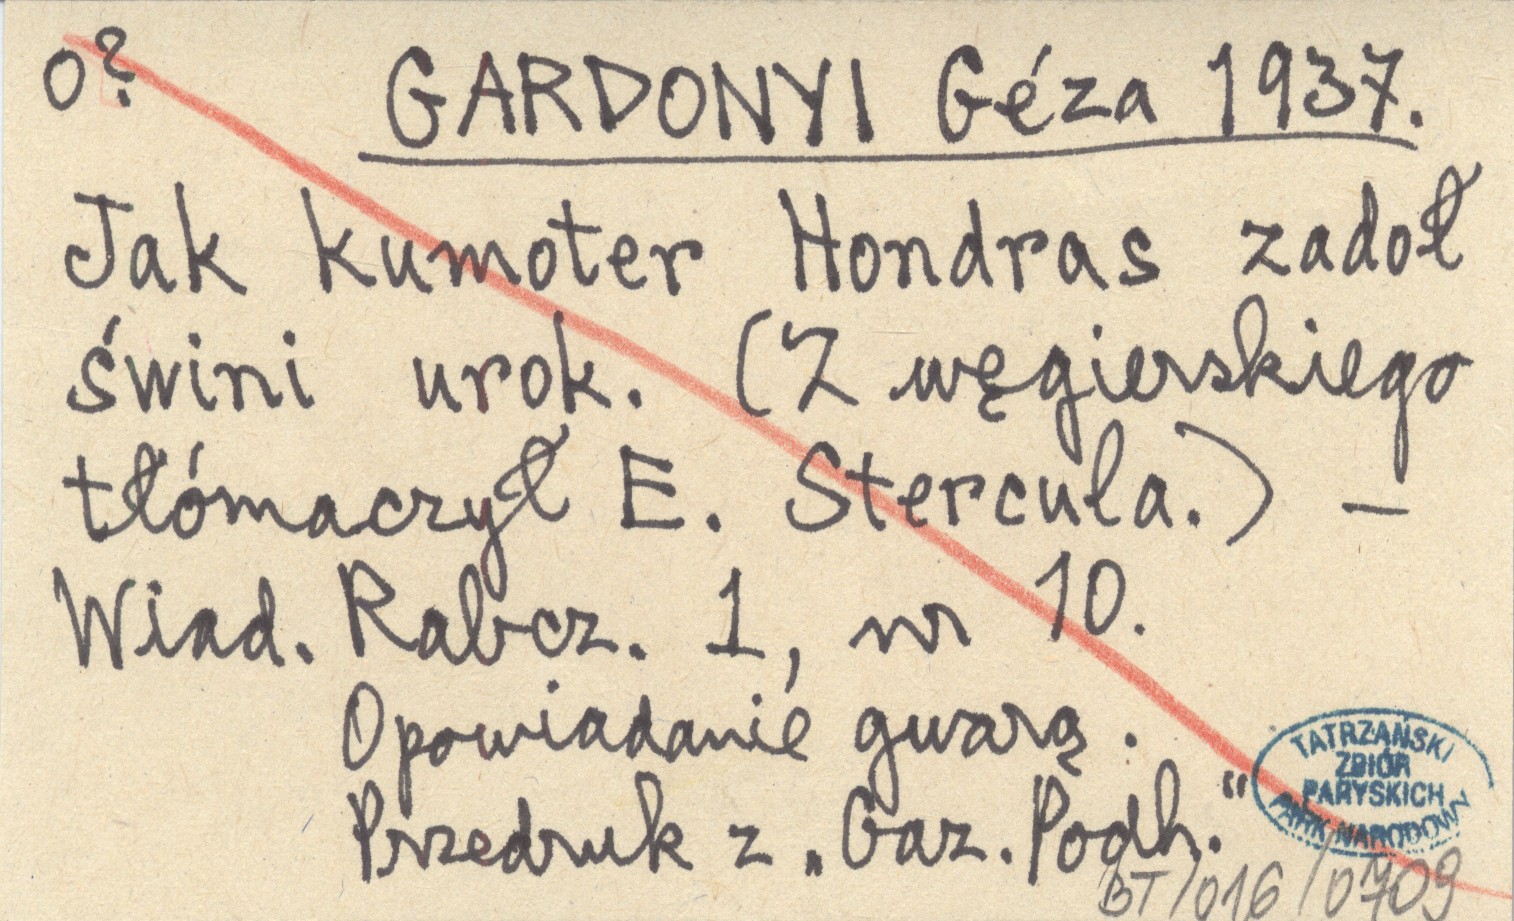 o?
GARDONYI Géza 1937.
Jak kumoter Hondras zadoł
świni urok. (Z węgierskiego
tłómaczył E. Stercula.) –
Wiad. Rabcz. 1, nr 10.
Opowiadanie gwarą.
Przedruk z „Gaz. Podh."
TATRZAŃSKI
ZBIÓR
PARYSKICH
PARK NARODOWY
BT/016/0709